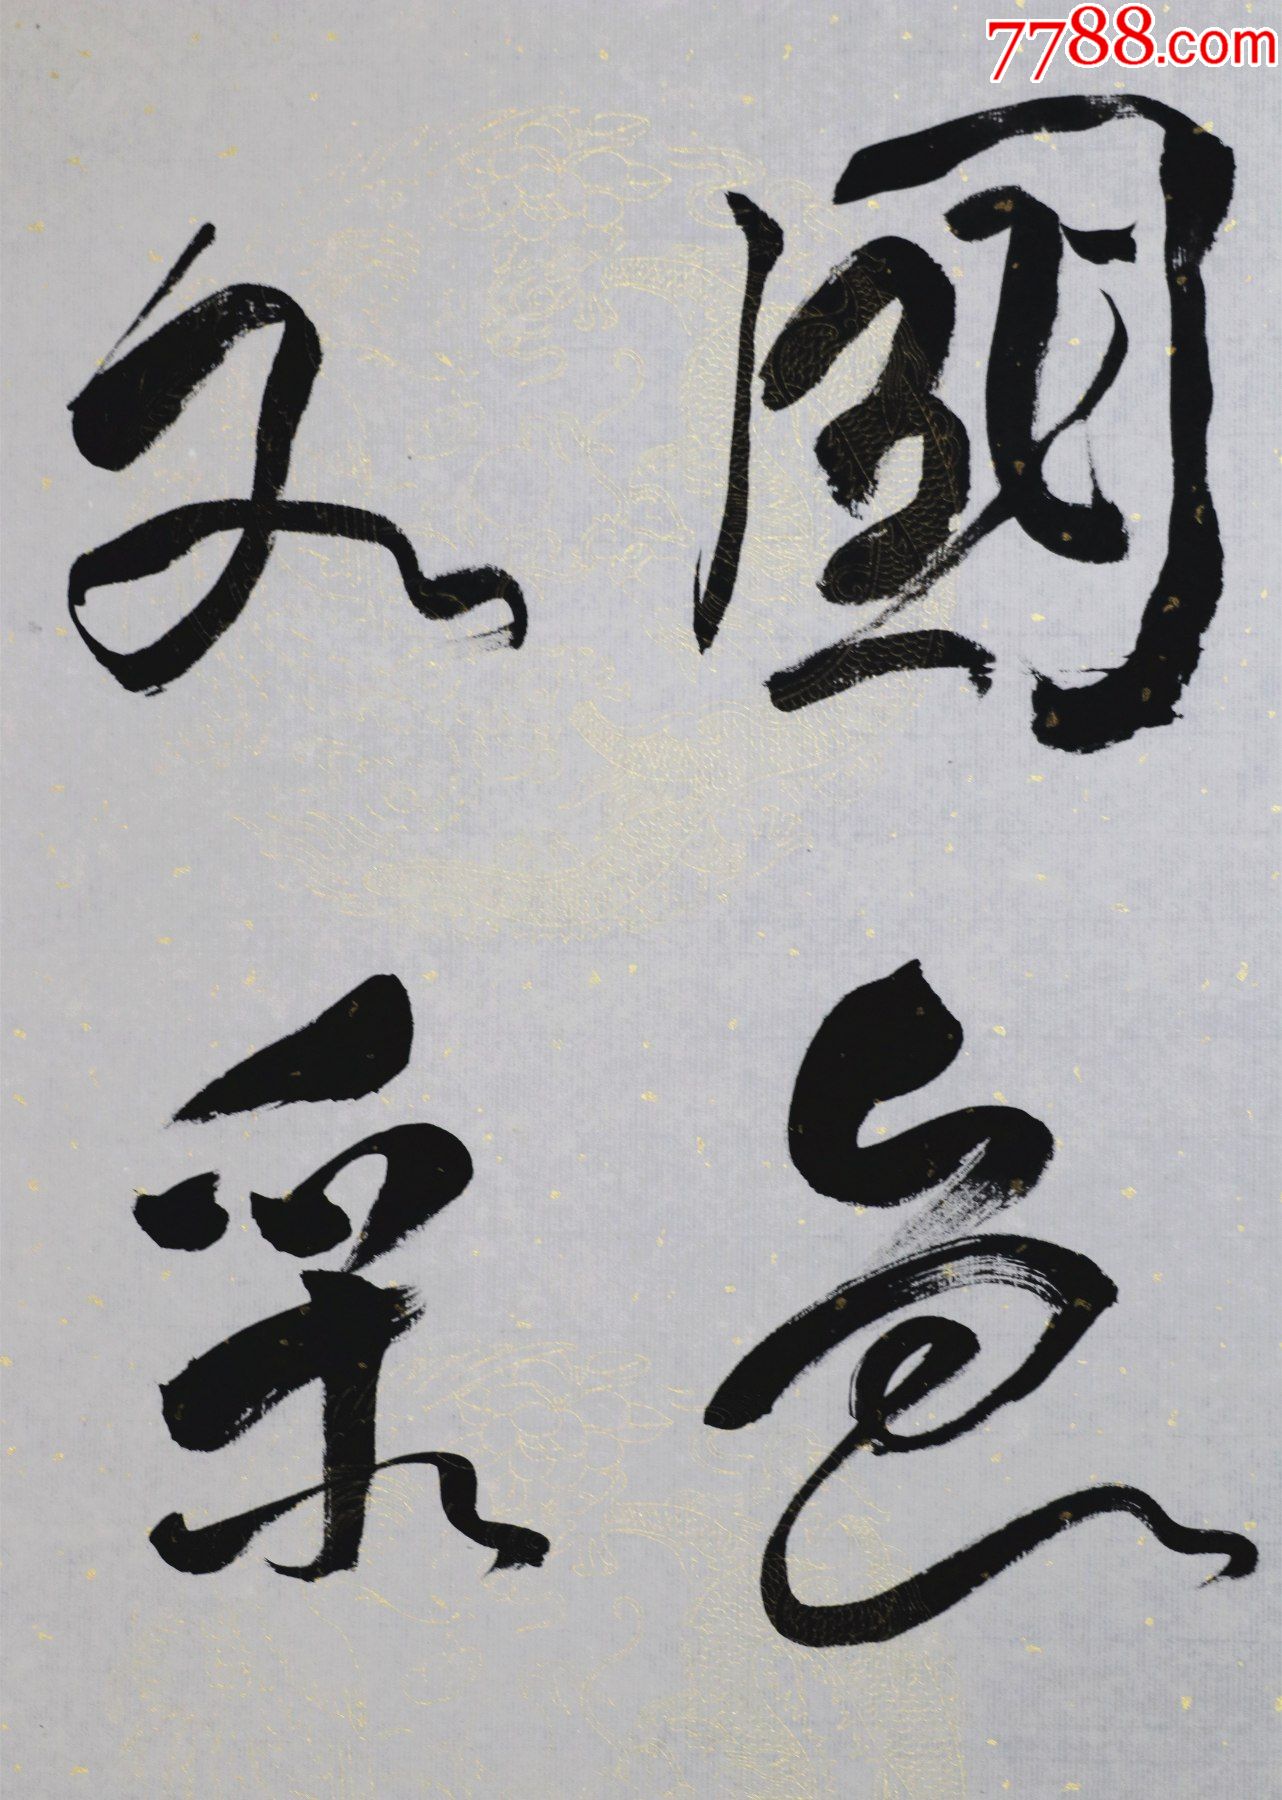 7788.com
國色
文采